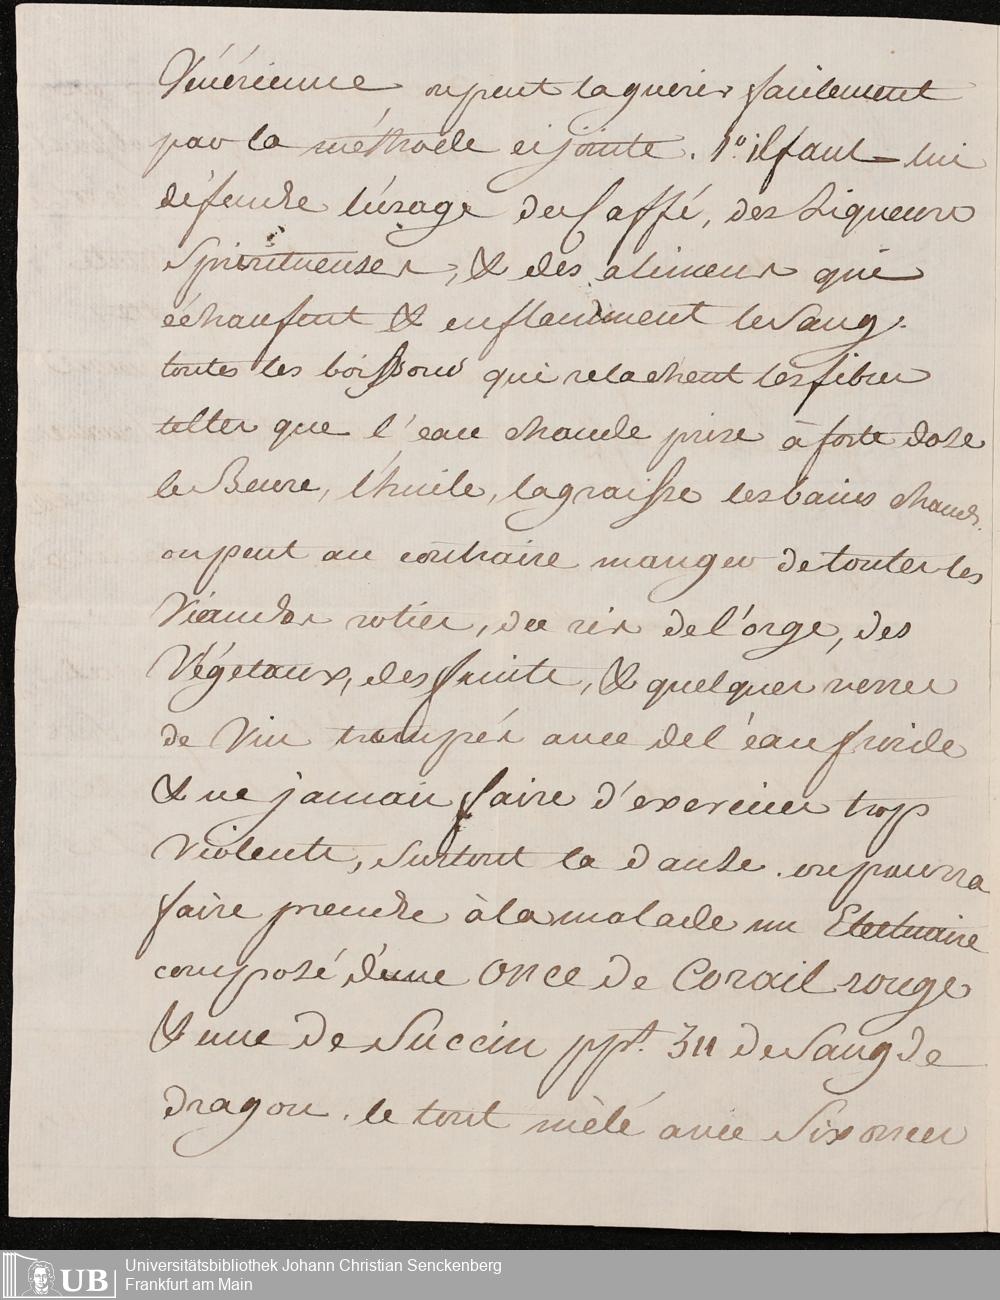 Vénérienne on peut la guerir facilement
par la méthode ci jointe. 1.° il faut lui
défendre l'úsage du Caffé, des Liqueurs
Spiritueuses, & des alimens qui
échaufent & enflamment le Sang.
toutes les boissons qui relachent les fibres
telles que l'eau chaude prise à forte dose
le Beure, l'huile, la graisse les bains chauds.
on peut au contraire manger de toutes les
Viandes roties, du ris de l'orge, des
Végetaux, des fruits, & quelques verres
de Vin trempés avec de l'éau froide
& ne jamais faire d'exercices trop
Violents, surtout la danse. on pourra
faire prendre à la malade un Electuaire
composé d'une Once de Corail rouge
& une de Succin ppt. ʒii de Sang de
dragon. le tout mèlé avec Six onces
Universitätsbibliothek Johann Christian Senckenberg
Frankfurt am Main
UB